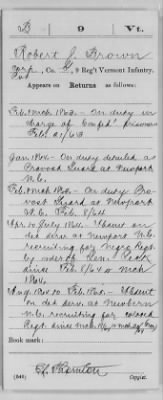 B 9 Vt.
Robert J. Brown
Corp, Co. G, 9 Reg't Vermont Infantry.
Pvt
Appears on Returns as follows:
Feb. Mch. 1863 - On duty in
charge of Confed prisoners
Feb. 21/63
Jan. 1864 - On duty detailed as
Provost Guard at Newport
N.C.
Feb. Mch. 1864 - On duty Pro-
vost Guard at Newport
N.C. Feb. 8/64
Apr. to July 1864 - Absent on
det. serv. at Newport N.C.
recruiting for Negro Regt.
by order of Gen. Peck
since Feb. 1864
1864
Absent
on det. serv. at Newbern
N.C. recruiting for colored
Regt. since
Book mark:
Thornton
(546) Copyist.